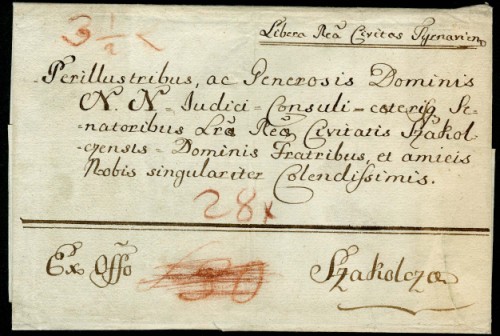 3 1/2
Libera Reã Civitas Tyrnavien
Perillustribus, ac Generosis Dominis
N. N = Judici = Consuli = ceterisq Se=
natoribus Lræ Reæ Civitatis Szakol=
czensis = Dominis Fratribus, et amicis
Nobis singulariter Colendissimis.
28x
Ex Offo
Szakolcza